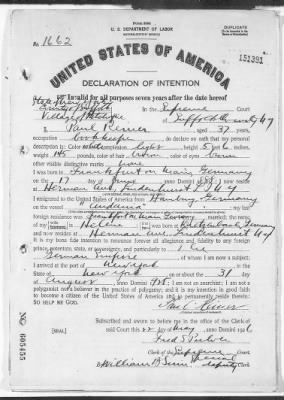 Form 2202
U. S. DEPARTMENT OF LABOR
NATURALIZATION SERVICE
DUPLICATE
No. 1662
UNITED STATES OF AMERICA
151391
DECLARATION OF INTENTION
Invalid for all purposes seven years after the date hereof
State of New York
In the Supreme Court
County of Suffolk
of Suffolk County N Y
I, Paul Reiner, aged 37 years,
occupation bookkeeper, do declare on oath that my personal
description is: Color white, complexion light, height 5 feet 6 inches,
weight 145 pounds, color of hair brown, color of eyes brown
other visible distinctive marks none
I was born in Frankfurt on Main, Germany
on the 17 day of June, anno Domini 1888; I now reside
at Herman Ave, Lindenhurst N Y
I emigrated to the United States of America from Hamburg, Germany
on the vessel
foreign residence was Frankfort on Main Germany; I am married; the name
of my wife is Helene; she was born at Germany
and now resides at Herman Ave, Lindenhurst N Y
It is my bona fide intention to renounce forever all allegiance and fidelity to any foreign
prince, potentate, state, or sovereignty, and particularly to The
German Empire, of whom I am now a subject;
I arrived at the port of New York, in the
State of New York, on or about the 31 day
of August, anno Domini; I am not an anarchist; I am not a
polygamist nor a believer in the practice of polygamy; and it is my intention in good faith
to become a citizen of the United States of America and to permanently reside therein:
SO HELP ME GOD.
Subscribed and sworn to before me in the office of the Clerk of
[SEAL] said Court this 22 day of May, anno Domini 1926
Fred S Pulver
Clerk of the Supreme Court.
By William A. special deputy Clerk.
No 605455